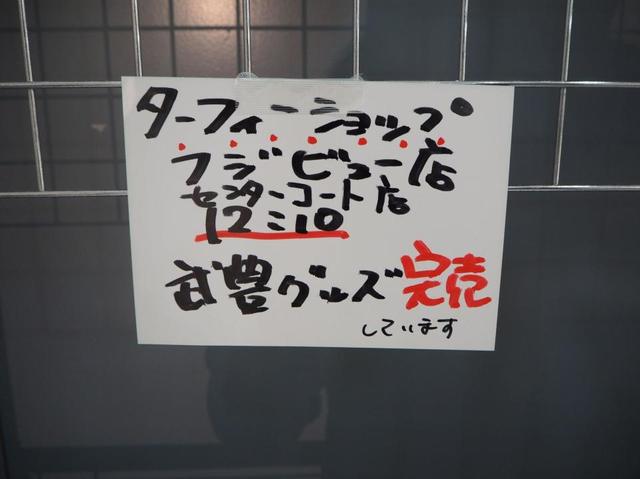 ターフィーショップ
フジビュー店
センターコート店
12:10
武豊グッズ完売
しています